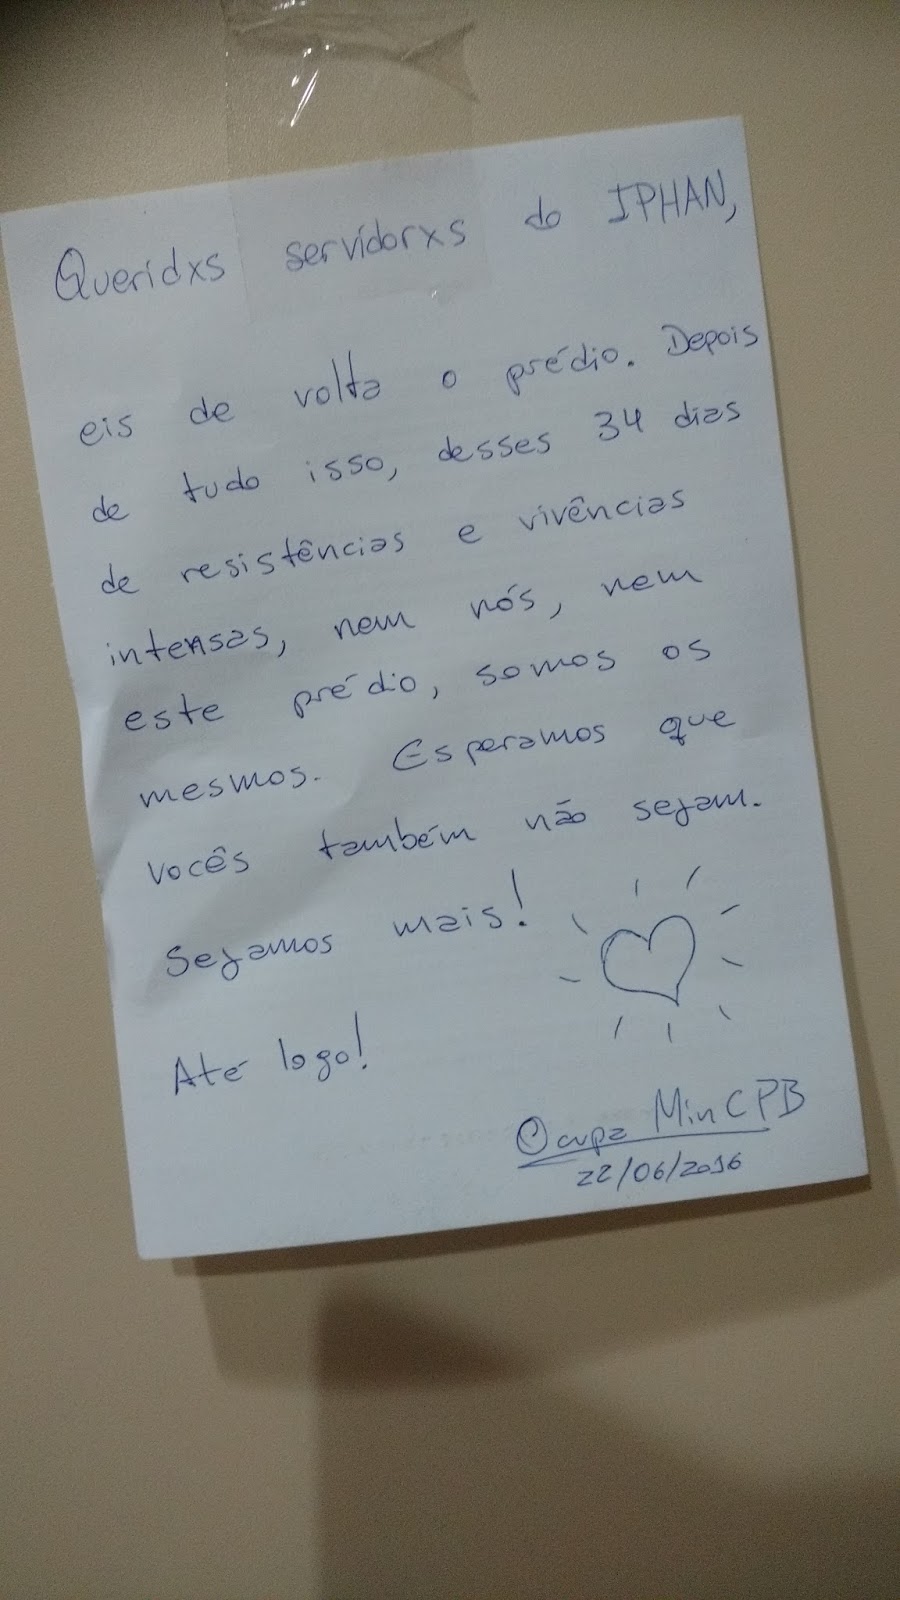 Queridxs servidorxs do IPHAN,
eis de volta o prédio. Depois
de tudo isso, desses 34 dias
de resistências e vivências
intensas, nem nós, nem
este prédio, somos os
mesmos. Esperamos que
vocês também não sejam.
Sejamos mais!
Até logo!
Ocupa MinC PB
22/06/2016